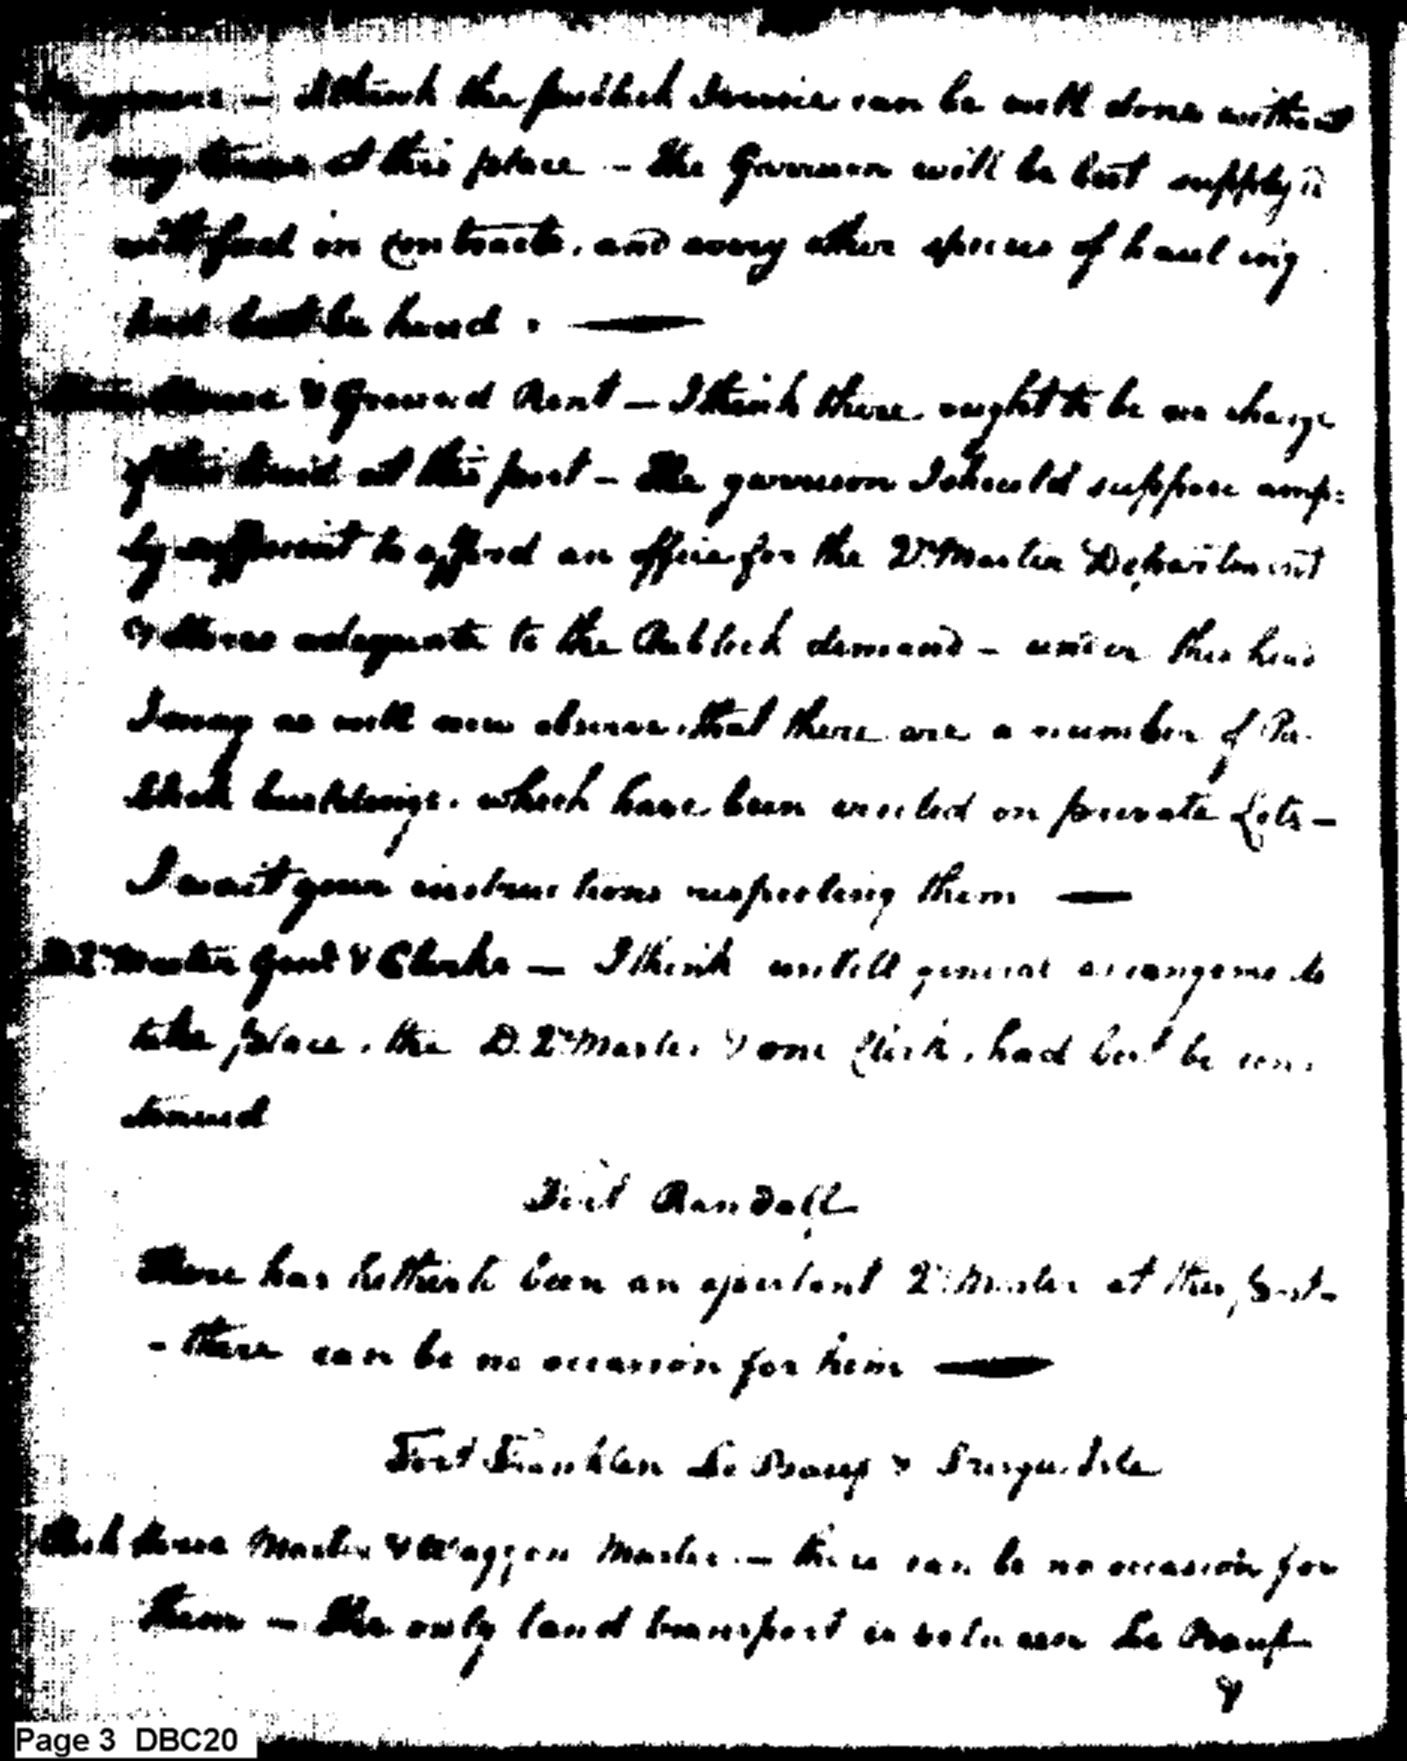 Waggoners — I think the publick Service can be well done without
any teams at this place — The Garrison will be best supply'd
with fuel on Contracts, and every other species of hauling
had best be hired. —
House & Ground Rent — I think there ought to be no charge
of this kind at this post — The garrison I should suppose amp=
ly sufficient to afford an office for the Qr Master Department
& Stores adequate to the Publick demand — under this head
I may as well now observe, that there are a number of Pu-
blick buildings, which have been erected on private Lots —
I wait your instructions respecting them —
D Qr Master Genl & Clerks — I think untill general arrangements
take place, the D. Qr Master & one Clerk, had best be con-
tinued
Fort Randolph
There has hitherto been an assistant Qr Master at this post —
- there can be no occasion for him —
Fort Franklin Le Boeuf & Presque Isle
Pack Horse Master & Waggon Master — there can be no occasion for
them — The only land transport is between Le Boeuf
&
Page 3 DBC20